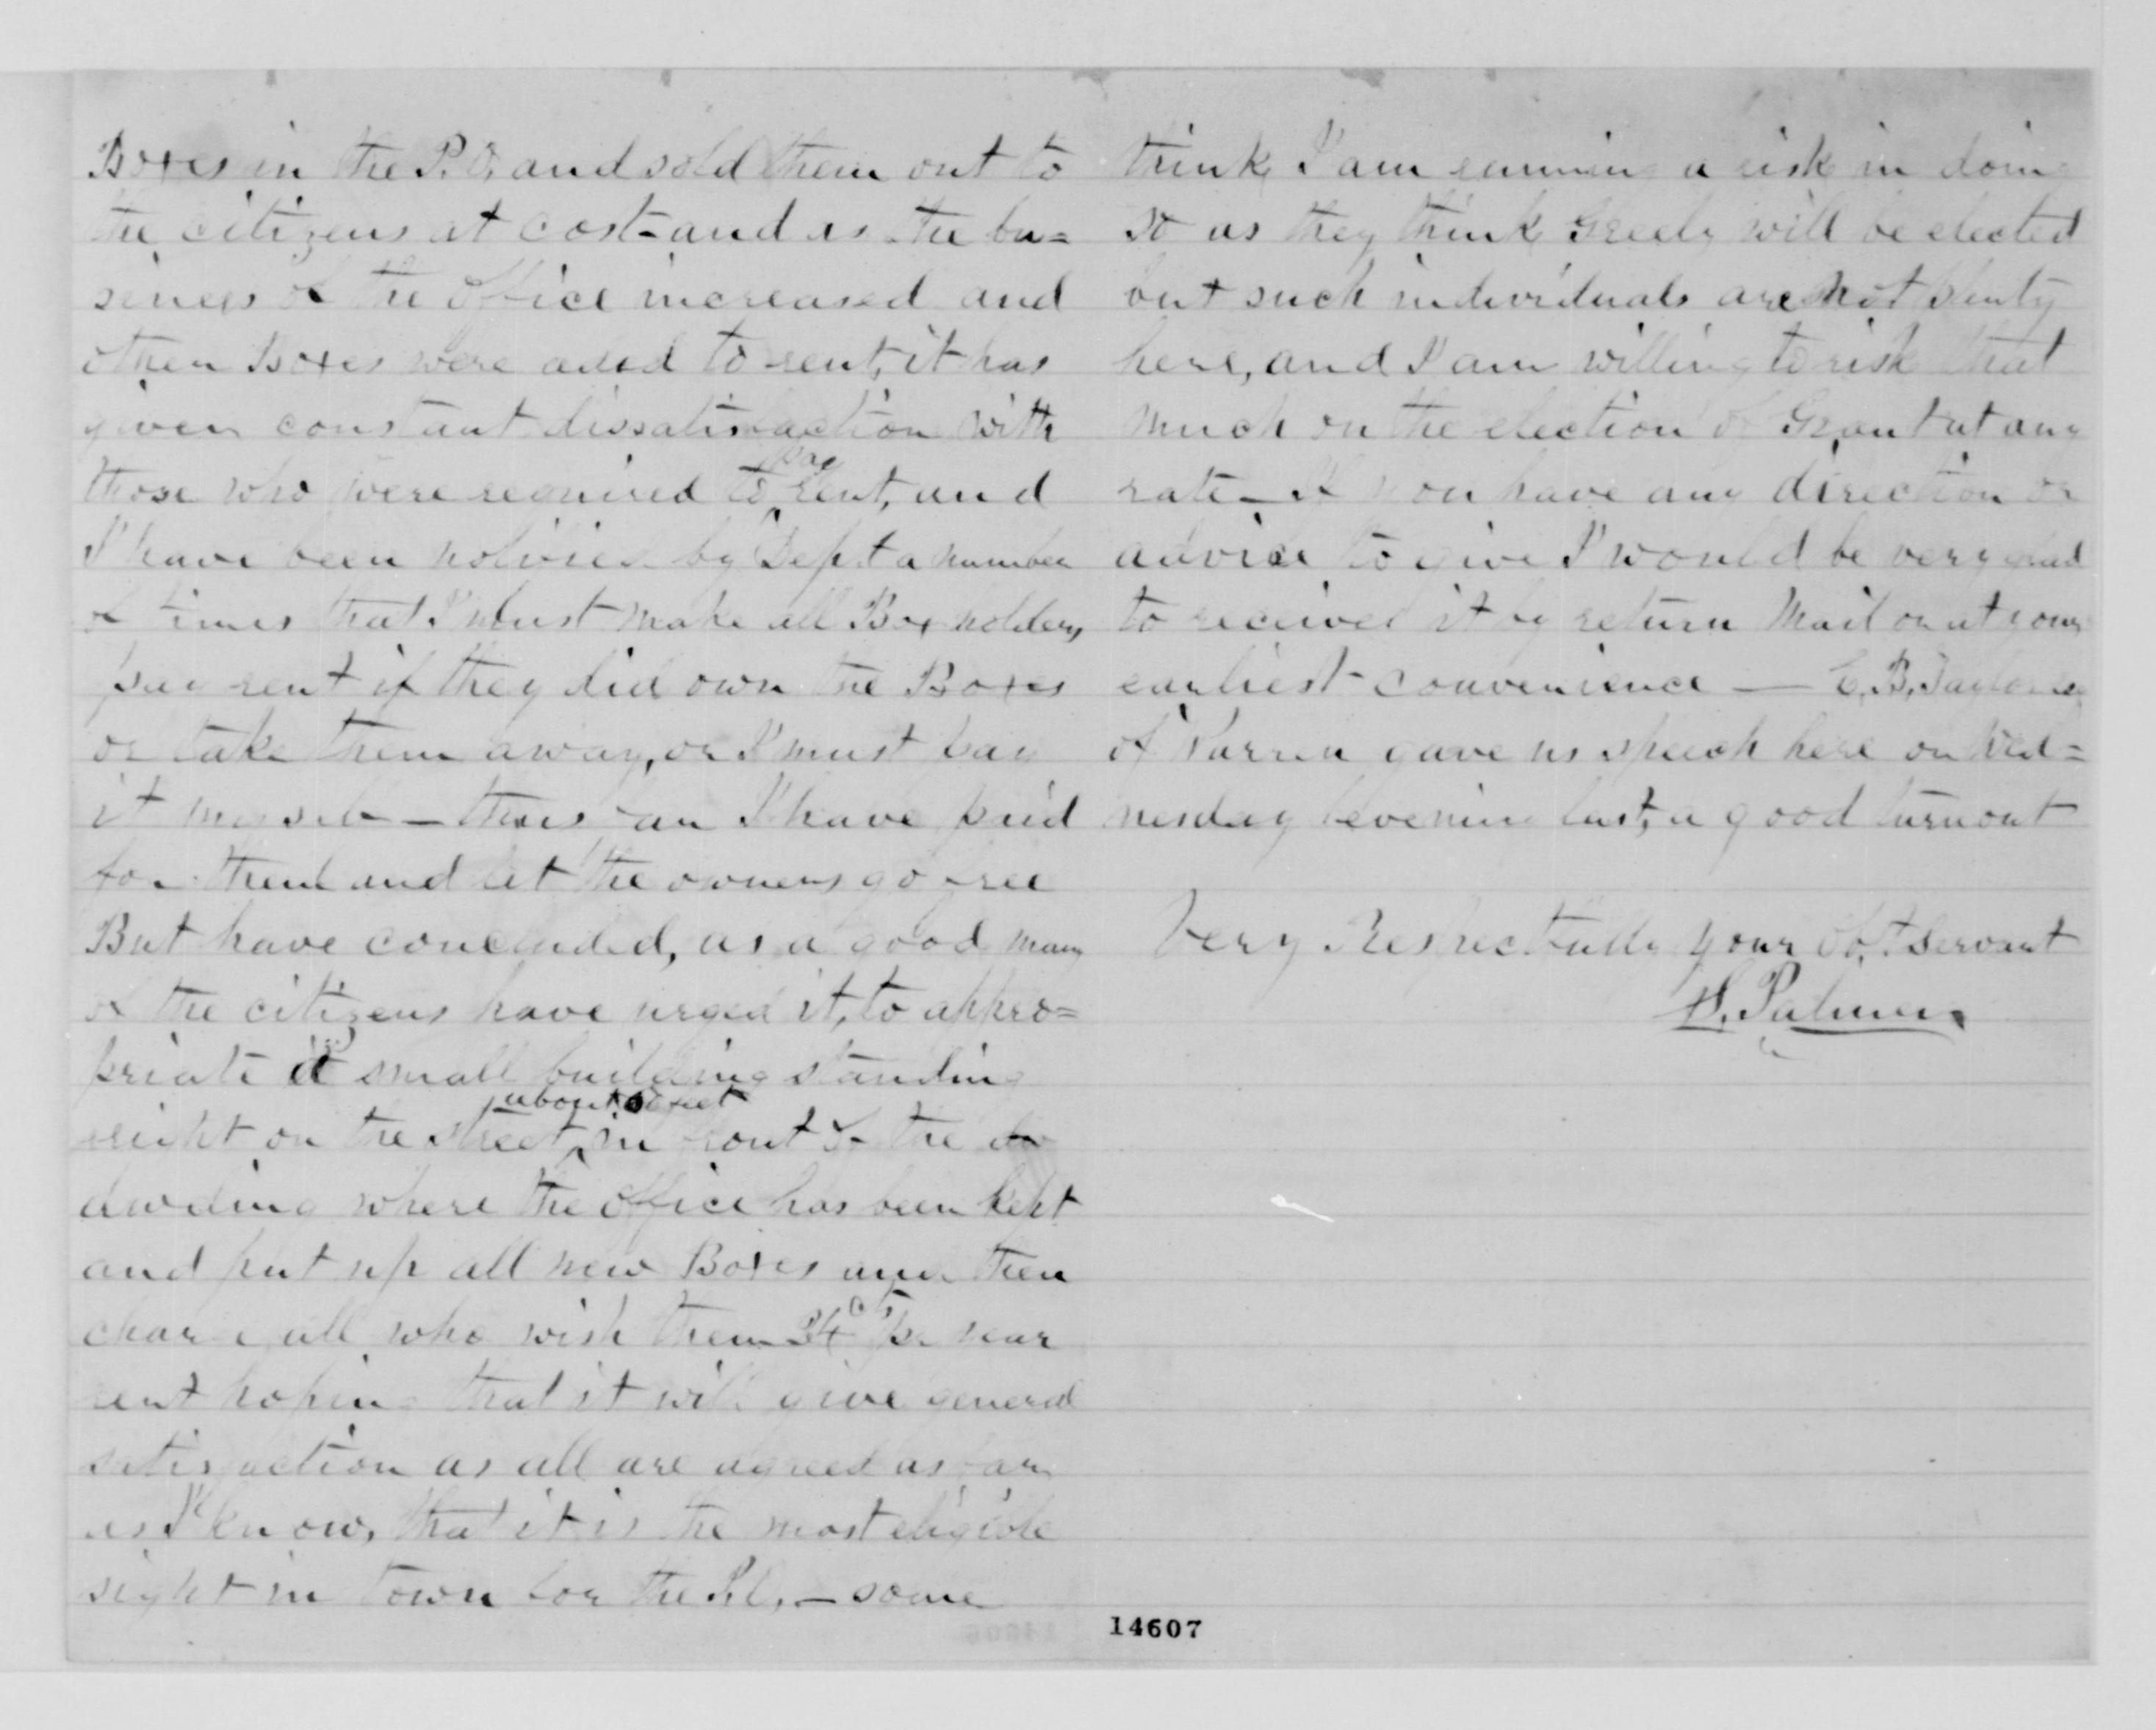 Boxes in the P.O. and sold them out to
the citizens at cost - and as the bu=
siness of the office increased and
other Boxes were aded to rent, it has
given constant dissatisfaction with
those who were required to pay rent, and
I have been notified by Dept a number
of times that I must make all Box holders
pay rent if they did own the Boxes
or take them away, or I must pay
it myself - thus far I have paid
for them and let the owners go free
But have concluded, as a good many
of the citizens have urged it, to appro=
priate a small building standing
right on the street about feet in front of the
where the office has been kept
and put up all new Boxes and then
charge all who wish them 24 cts pr year
rent hoping that it will give general
satisfaction as all are agreed as far
as I know, that it is the most eligible
sight in town for the P.O. - some
think I am running a risk in doing
so as they think Greely will be elected
but such individuals are not plenty
here, and I am willing to risk that
much on the election of Grant at any
rate - If you have any direction or
advice to give I would be very glad
to receive it by return Mail or at your
earliest - convenience — E. B. Taylor
of Warren gave us speech here on Wed=
nesday evening last, a good turnout
Very Respectfully your Obt. Servant
H. Palmer
14607